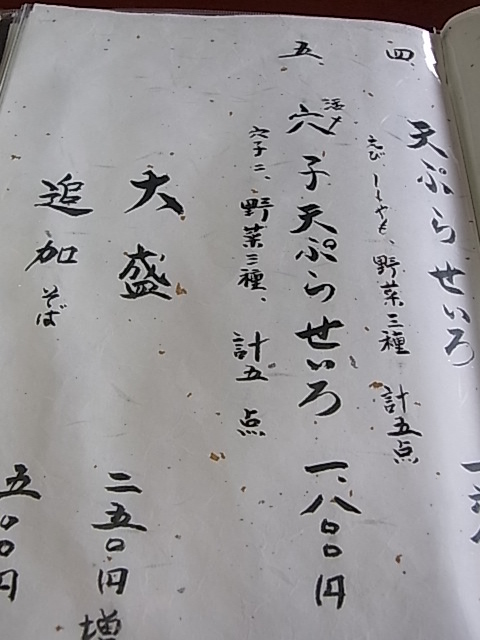 四、
天ぷらせいろ
えび、ししゃも、野菜三種 計五点
五、
活〆
穴子天ぷらせいろ 一、八〇〇円
穴子二、野菜三種、計五点
大盛 二五〇円増
追加そば 五〇〇円